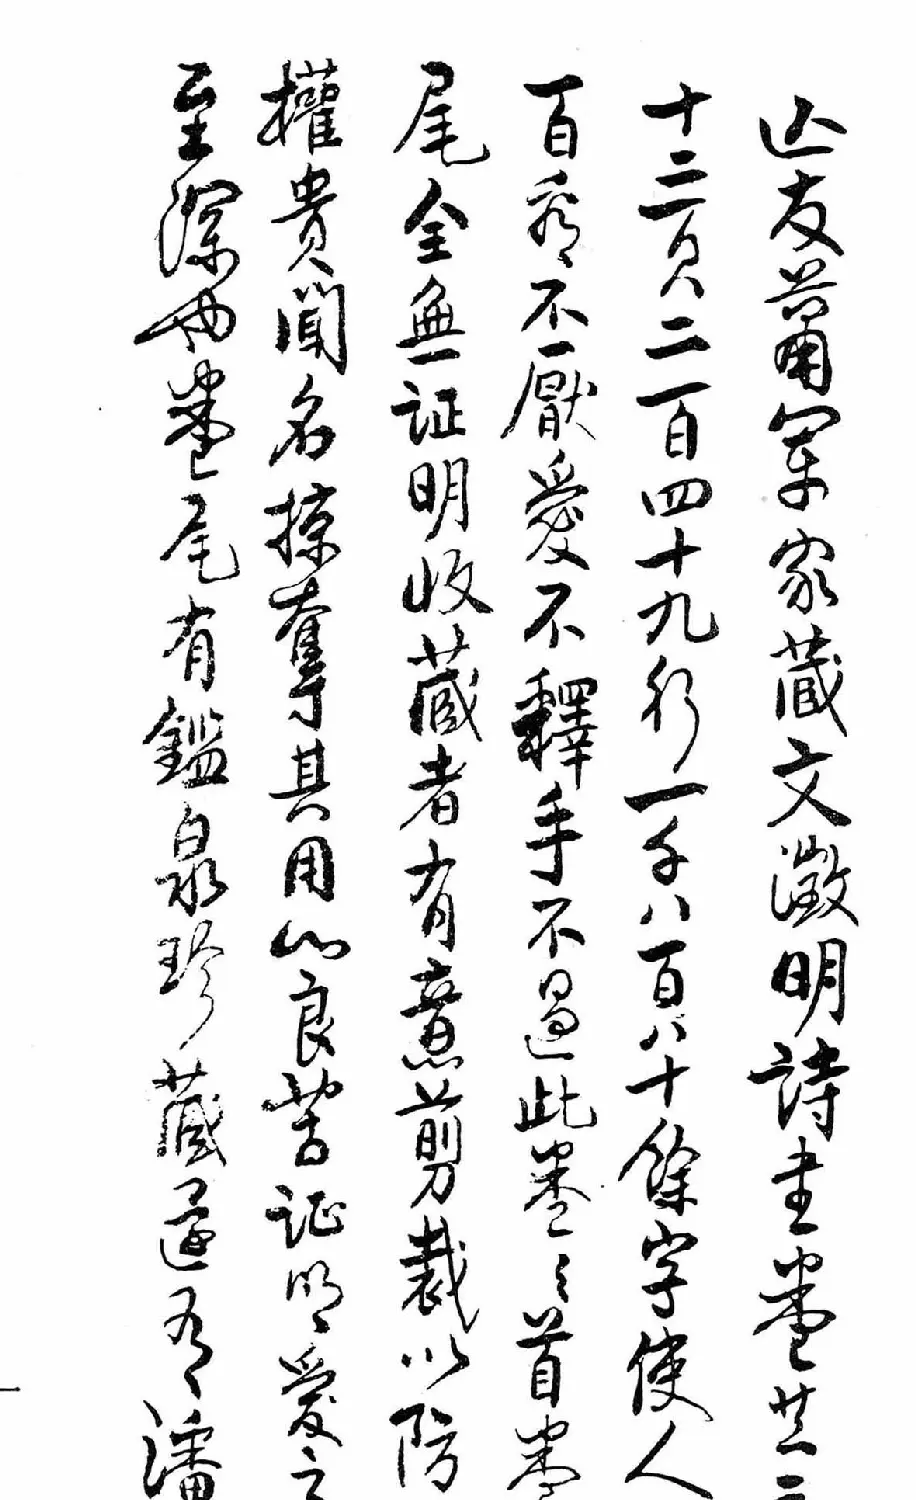 近友軍家藏文澂明詩書卷共
十二頁二百四十九行一千八百八十餘字使人
百看不厭愛不釋手不過此卷之首卷
尾全無証明收藏者有意剪裁以防
權貴聞名掠奪其用心良苦証明愛之
至深也卷尾有鑑泉珍藏還有潘